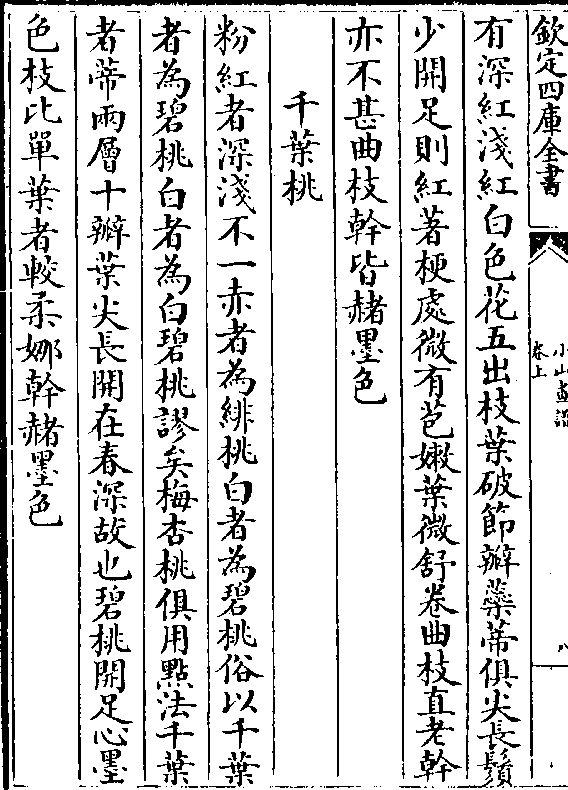 欽定四庫全書
小山畫譜
卷上
八
有深紅淺紅白色花五出枝葉破節瓣蘂蒂俱尖長鬚
少開足則紅著梗處微有苞嫩葉微舒卷曲枝直老幹
亦不甚曲枝幹皆赭墨色
千葉桃
粉紅者深淺不一赤者為緋桃白者為碧桃俗以千葉
者為碧桃白者為白碧桃謬矣梅杏桃俱用點法千葉
者蒂兩層十瓣葉尖長開在春深故也碧桃開足心墨
色枝比單葉者較柔娜幹赭墨色